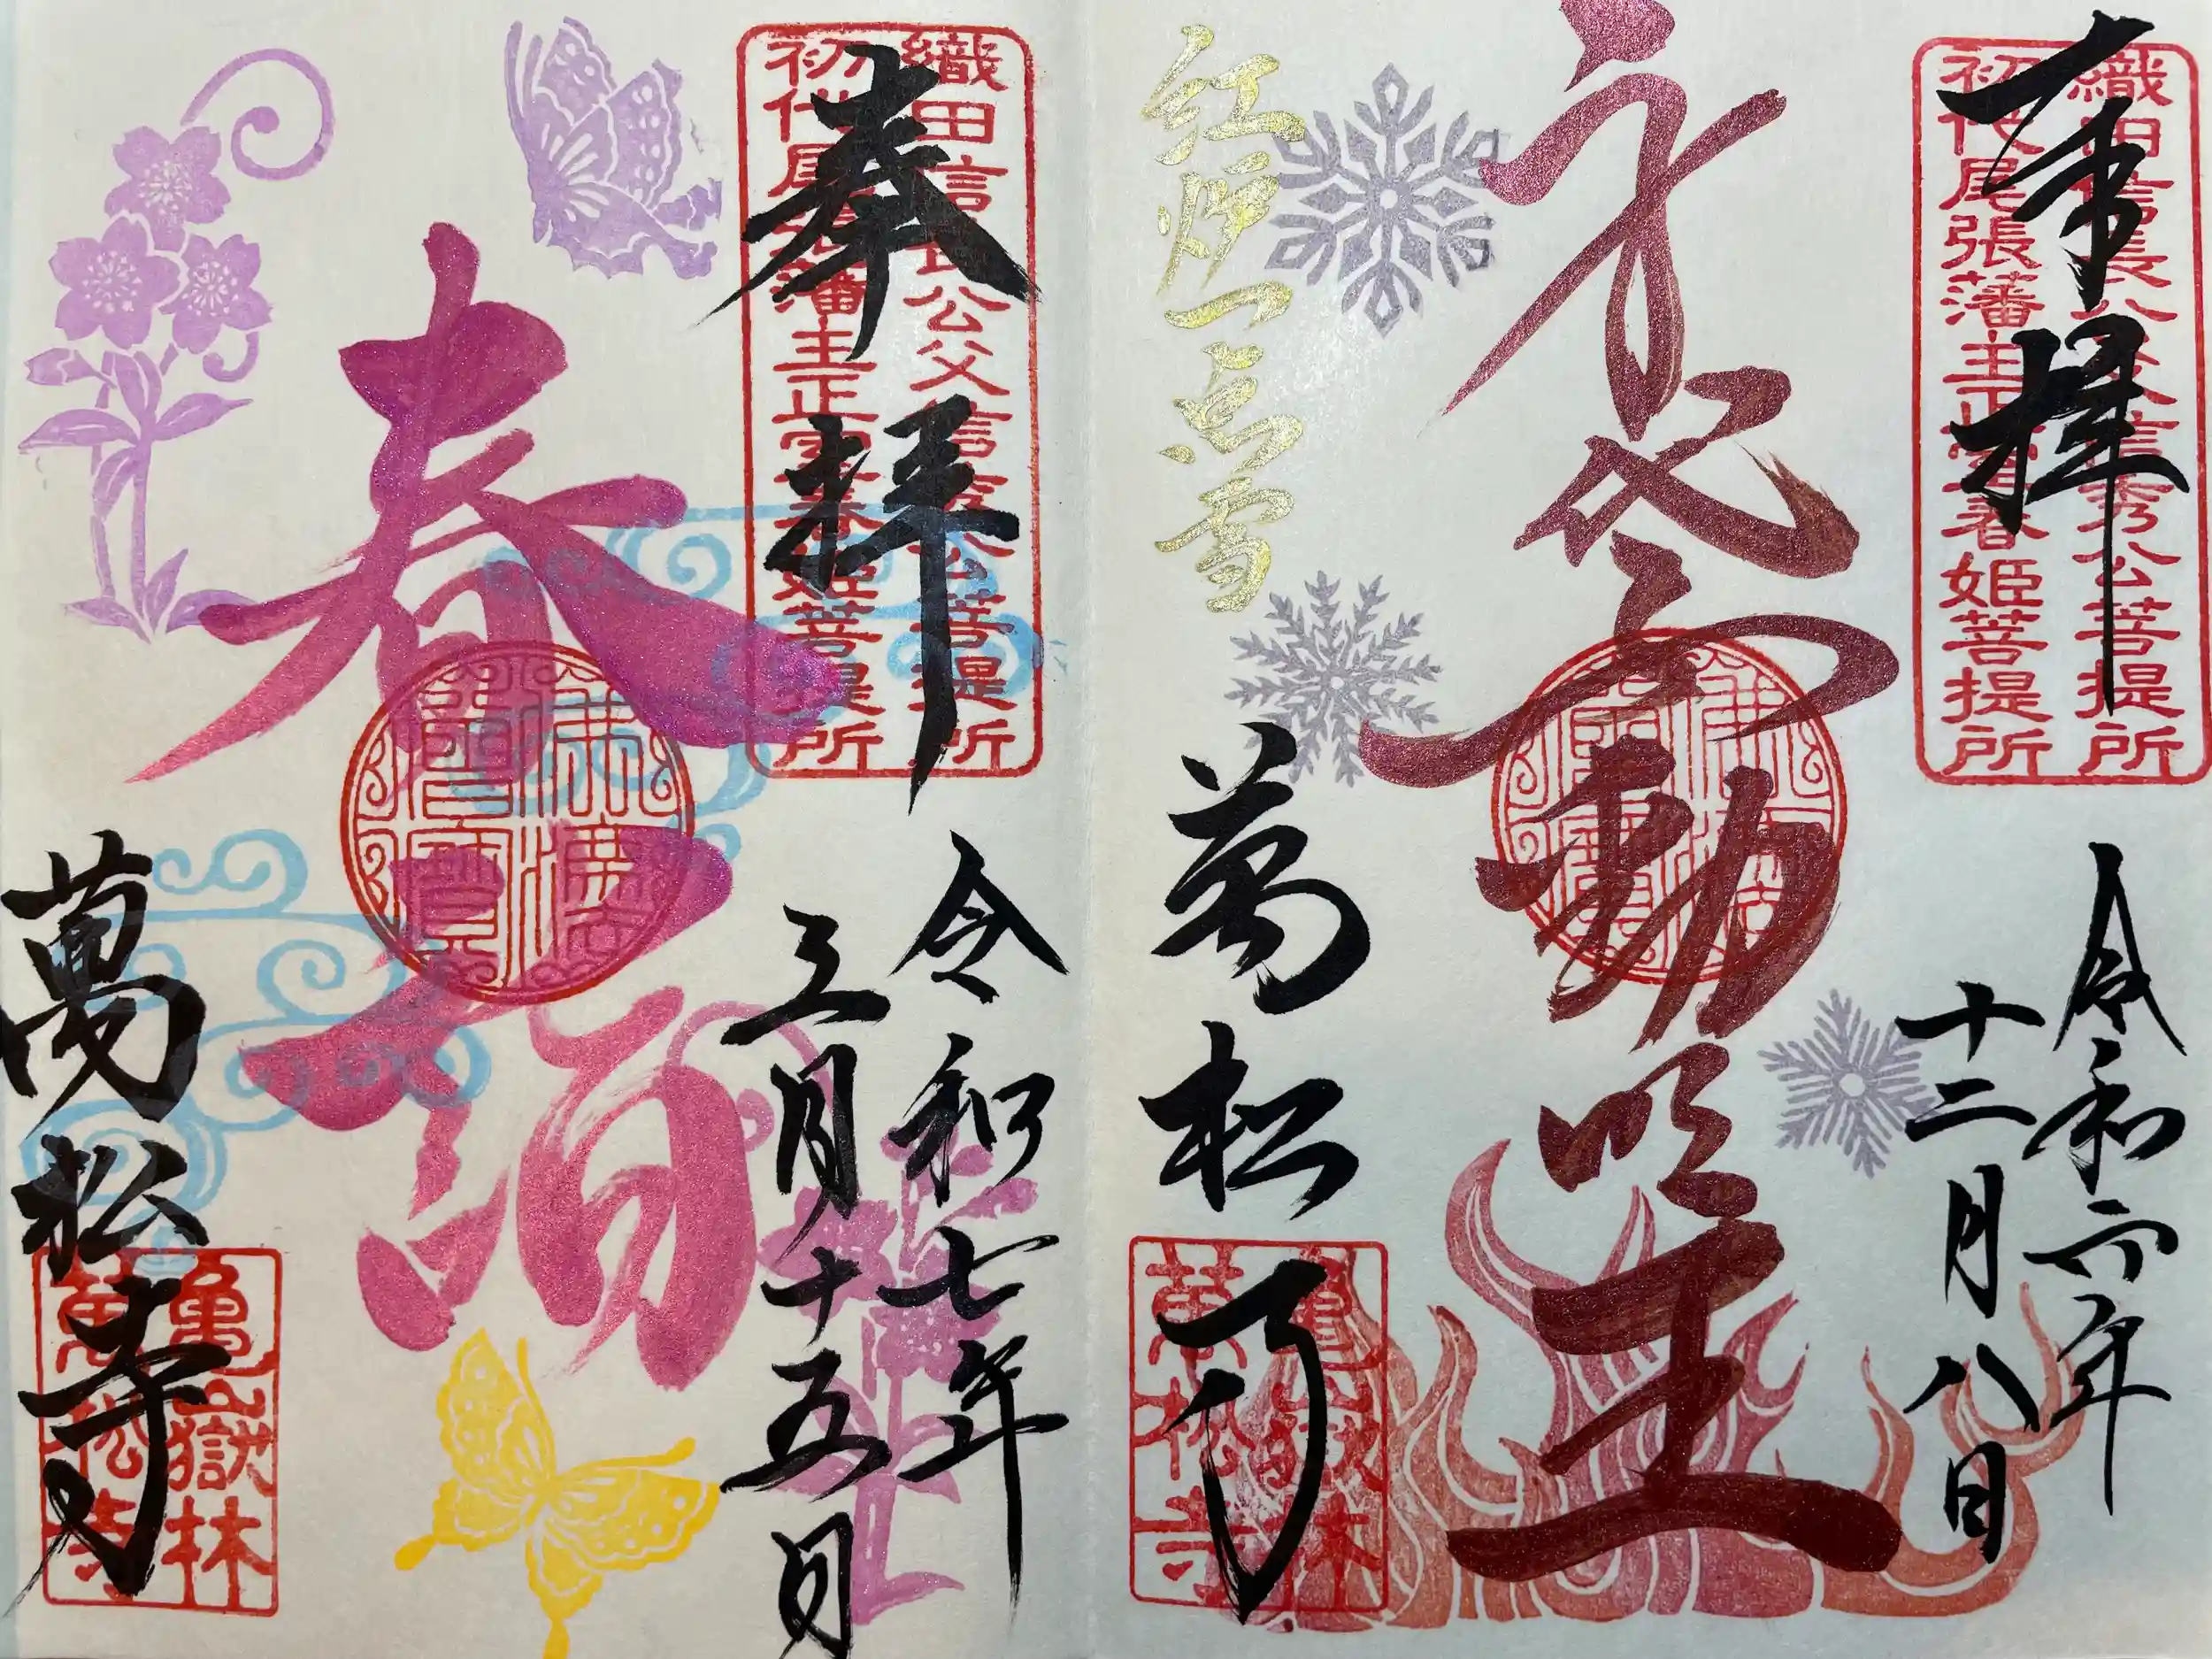 奉拝
織田信長公父信秀公菩提所
初代尾張藩主正室春姫菩提所
令和六年
十二月八日
身代不動明王
佛法僧寶
紅炉一点雪
萬松寺
亀嶽林
萬松寺
奉拝
織田信長公父信秀公菩提所
初代尾張藩主正室春姫菩提所
令和七年
三月十五日
春詣
佛法僧寶
萬松寺
亀嶽林
萬松寺